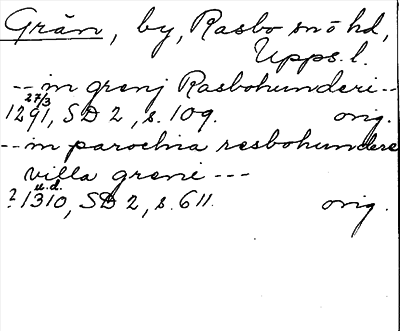 Grän, by, Rasbo sn o hd,
Upps. l.
-- in grenj Rasbohunderi --
27/3
1291, SD 2, s. 109. orig.
-- in parochia resbohundere
villa grene ---
u.d.
? 1310, SD 2, s. 611. orig.